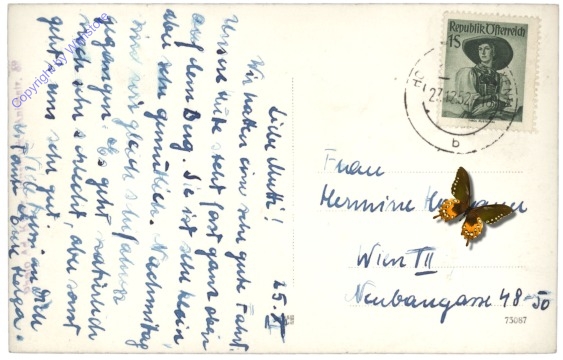 Liebe Mutti!
25. XII.
Wir hatten eine sehr gute Fahrt.
Unsere Hütte steht fast ganz oben
auf dem Berg. Sie ist sehr klein
aber sehr gemütlich. Nachmittag
sind wir gleich skifahren
gegangen. Es geht natürlich
noch sehr schlecht, aber sonst
geht es uns sehr gut.
Viele Bussi an Dich
Frau
Hermine
Wien VII
Neubaugasse 48-50
73087
Republik Österreich
1S
27.12.52
b
Copyright by